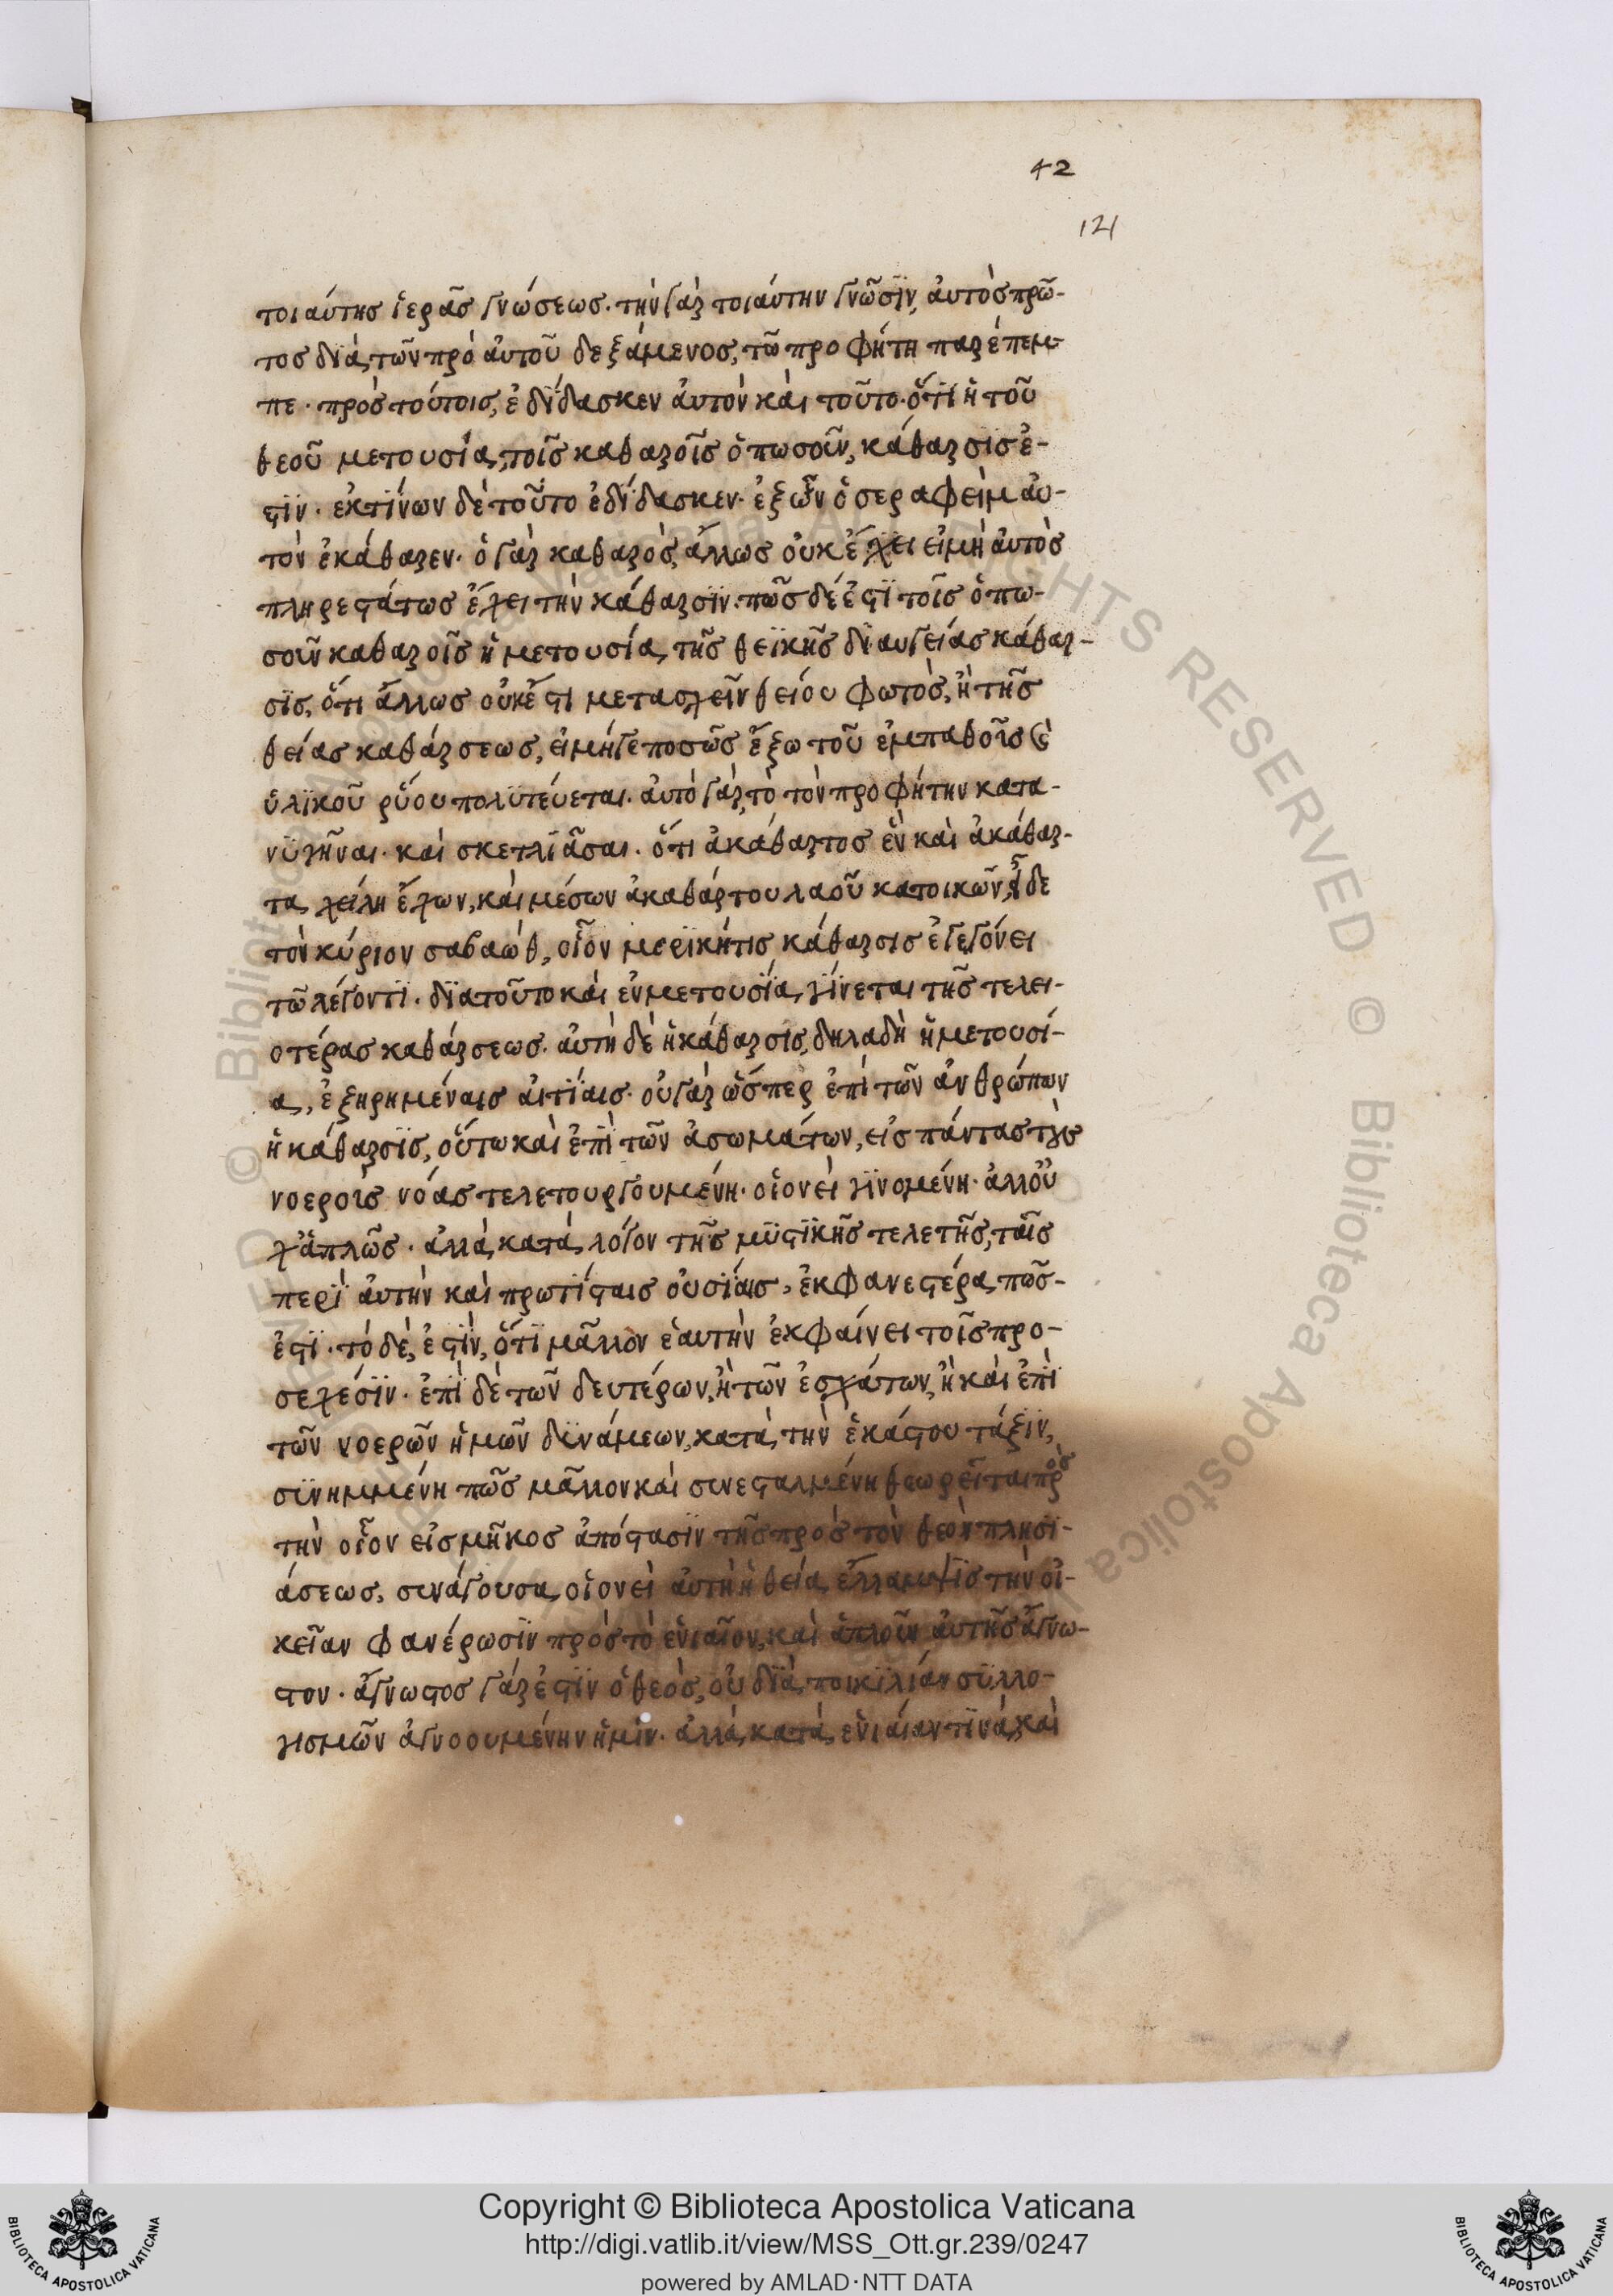 42
121
τοιαύτης ἱερᾶς γνώσεως. τὴν γὰρ τοιαύτην γνῶσϊν, αὐτὸς πρῶ-
τος δϊὰ τῶν πρὸ αὐτοῦ δεξάμενος, τῶ προφήτη παρέπεμ-
πε. πρὸς τούτοις, ἐδίδασκεν αὐτὸν καὶ τοῦτο. ὅτϊ ἡ τοῦ
θεοῦ μετουσία, τοῖς καθαροῖς ὁπωσοῦν, κάθαρσϊς ἐ-
στϊν. ἐκ τίνων δὲ τοῦτο ἐδίδασκεν. ἐξ ὧν ὁ σεραφεὶμ αὐ-
τὸν ἐκάθαρεν. ὁ γὰρ καθαρὸς, ἄλλως οὐκ ἔχει εἰ μὴ αὐτὸς
πληρεστάτως ἔχει τὴν κάθαρσϊν. πῶς δέ ἐστϊ τοῖς ὁπω-
σοῦν καθαροῖς ἡ μετουσία, τῆς θεϊκῆς δϊαυγείας κάθαρ-
σϊς, ὅτι ἄλλως οὐκ ἔστι μετασχεῖν θείου φωτὸς, ἢ τῆς
θείας καθάρσεως, εἰ μήγε ποσῶς ἔξω τοῦ ἐμπαθοῦς καὶ
ὑλϊκοῦ ῥύου πολϊτεύεται. αὐτὸ γὰρ, τὸ τὸν προφήτην κατα-
νϋγῆναι. καὶ σχετλϊᾶσαι. ὅτι ἀκάθαρτος ὢν καὶ ἀκάθαρ-
τα χείλη ἔχων, καὶ μέσων ἀκαθάρτου λαοῦ κατοικῶν, εἶδε
τὸν κύριον σαβαὼθ, οἷον μερϊκήτις κάθαρσις ἐγεγόνει
τῶ λέγοντϊ. δϊατοῦτο καὶ ἐν μετουσία, γίνεται τῆς τελει-
οτέρας καθάρσεως. αὐτὴ δὲ ἡ κάθαρσϊς, δηλαδὴ ἡ μετουσί-
α, ἐξηρημέναις αἰτίαις. οὐ γὰρ ὥσπερ ἐπὶ τῶν ἀνθρώπων
ἡ κάθαρσϊς, οὕτω καὶ ἐπὶ τῶν ἀσωμάτων, εἰς πάντας τοὺς
νοεροὺς νόας τελετουργουμένη. οἱονεὶ γϊνομένη. ἀλλ' οὐ
χ' ἁπλῶς. ἀλλὰ, κατὰ λόγον τῆς μϋστϊκῆς τελετῆς, ταῖς
περϊ αὐτὴν καὶ πρωτίσταις οὐσίαις, ἐκφανεστέρα πῶς-
ἐστϊ. τὸ δὲ, ἐστϊν, ὅτϊ μᾶλλον ἑαυτὴν ἐκφαίνει τοῖς προ-
σεχέσϊν. ἐπὶ δὲ τῶν δευτέρων, ἢ τῶν ἐσχάτων, ἢ καὶ ἐπὶ
τῶν νοερῶν ἡμῶν δϋνάμεων, κατὰ τὴν ἑκάστου τάξϊν,
σϋνημμένη πῶς μᾶλλον καὶ συνεσταλμένη θεωρεῖται πρὸς
τὴν οἷον εἰς μῆκος ἀπόστασϊν τῆς πρὸς τὸν θεὸν πλησϊ-
άσεως, συνάγουσα, οἱονεὶ αὐτὴ ἡ θεία ἔλλαμψϊς τὴν οἰ-
κεῖαν φανέρωσϊν πρὸς τὸ ἑνιαῖον, καὶ ἁπλοῦν αὐτῆς ἄγνω-
στον. ἄγνωστος γὰρ ἐστϊν ὁ θεὸς, οὐ δϊὰ ποικϊλίαν σϋλλο-
γισμῶν ἀγνοουμένην ἡμῖν. ἀλλὰ, κατὰ ἑνιαίαν τϊνὰ, καὶ
Copyright © Biblioteca Apostolica Vaticana
http://digi.vatlib.it/view/MSS_Ott.gr.239/0247
powered by AMLAD·NTT DATA